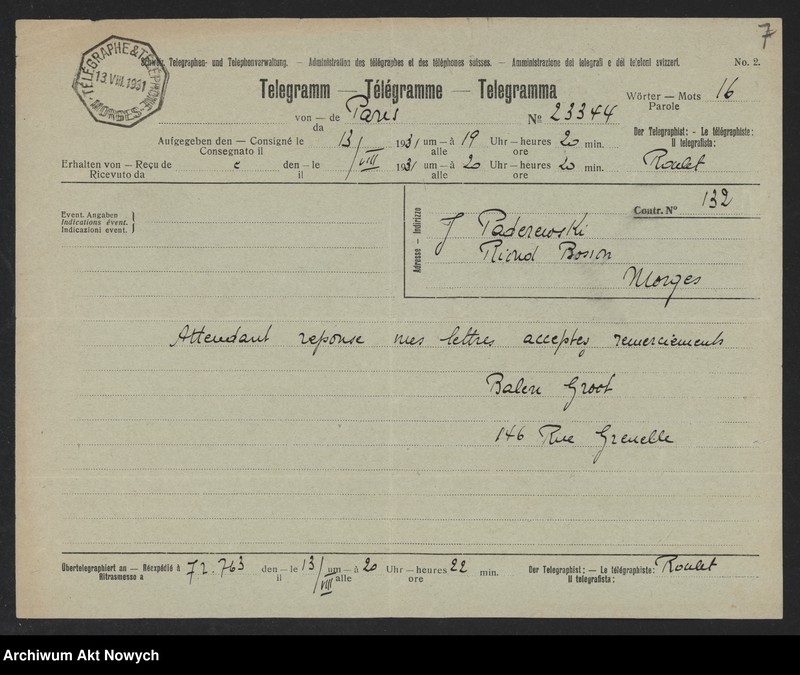 7
TÉLÉGRAPHE & TÉLÉPHONE
13.VIII.1931
MORGES
Schweiz. Telegraphen- und Telephonverwaltung. — Administration des télégraphes et des téléphones suisses. — Amministrazione dei telegrafi e dei telefoni svizzeri. No. 2.
Telegramm — Télégramme — Telegramma
Wörter — Mots 16
Parole
von — de Paris
da
No 23344
Der Telegraphist: - Le télégraphiste:
Il telegrafista:
Roulet
Aufgegeben den — Consigné le 13/VIII 1931 um — à 19 Uhr — heures 20 min.
Consegnato il alle ore
Erhalten von — Reçu de c den — le 1931 um — à 20 Uhr — heures 20 min.
Ricevuto da il alle ore
Event. Angaben
Indications évent.
Indicazioni event.
Adresse — Indirizzo
Contr. No 132
J Paderewski
Riond Bosson
Morges
Attendant reponse mes lettres acceptez remerciements
Balen Groot
146 Rue Grenelle
Übertelegraphiert an — Réexpédié à 72.763 den — le 13/VIII um — à 20 Uhr — heures 22 min.
Ritrasmesso a il alle ore
Der Telegraphist: — Le télégraphiste: Roulet
Il telegrafista:
Archiwum Akt Nowych